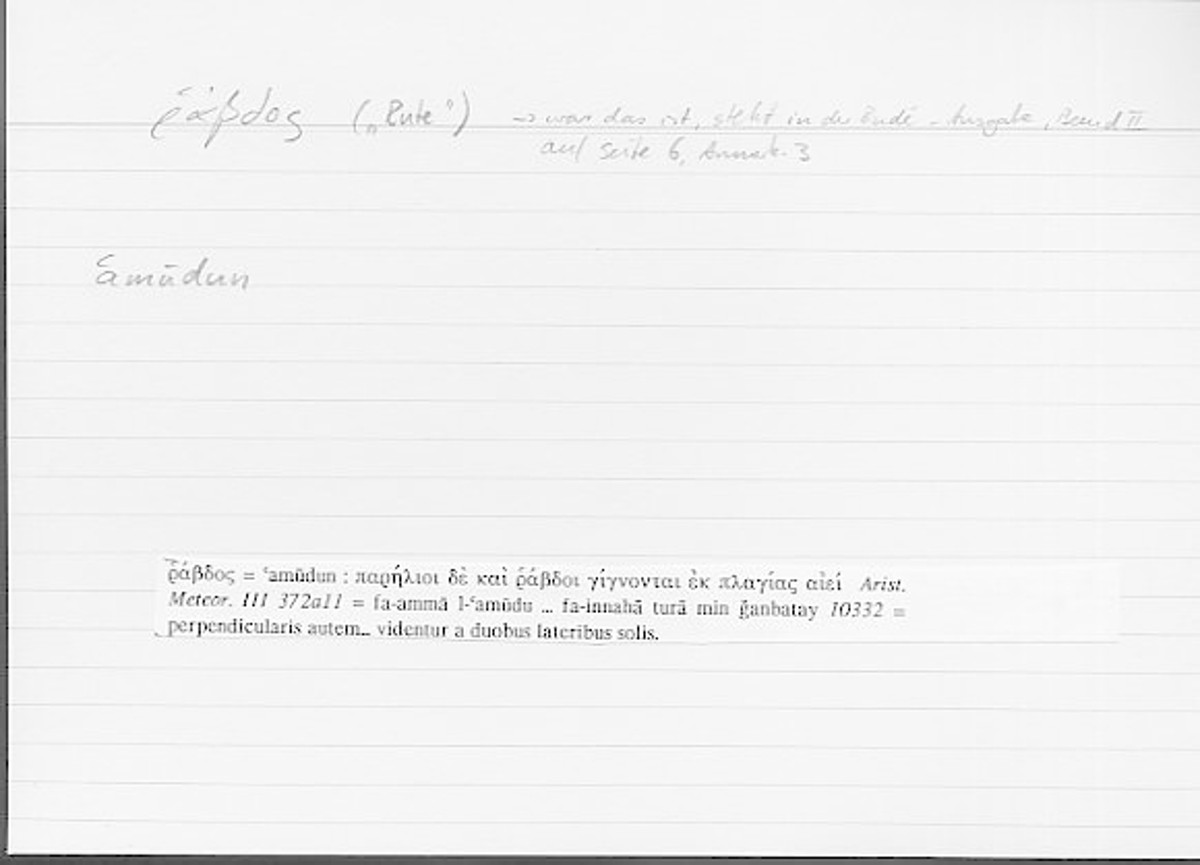 ῥάβδος („Rute“) → was das ist, steht in der Budé-Ausgabe, Band II
auf Seite 6, Anmerk. 3
ʿamūdun
ῥάβδος = ʿamūdun : παρήλιοι δὲ καὶ ῥάβδοι γίγνονται ἐκ πλαγίας αἰεί Arist.
Meteor. III 372a11 = fa-ammā l-ʿamūdu ... fa-innahā turā min ǧanbatay 10332 =
perpendicularis autem... videntur a duobus lateribus solis.